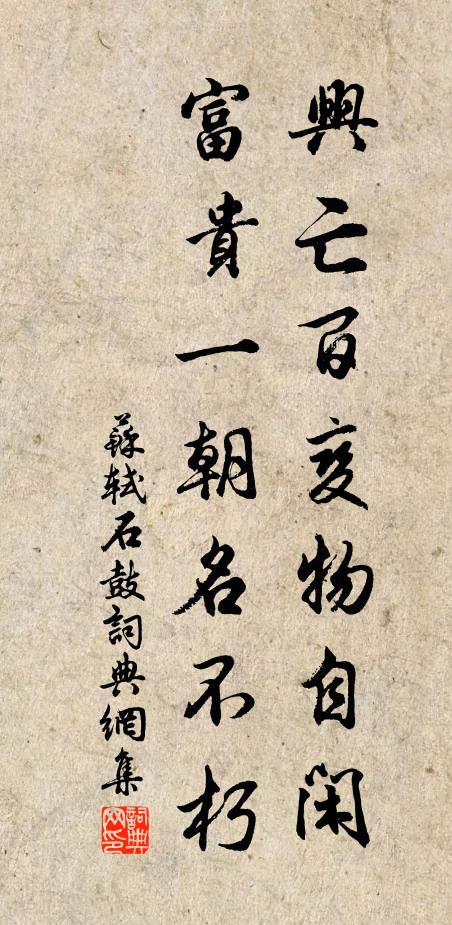 興亡百变物自閑
富貴一朝名不朽
蘇軾石鼓詞典網集
詞典網印